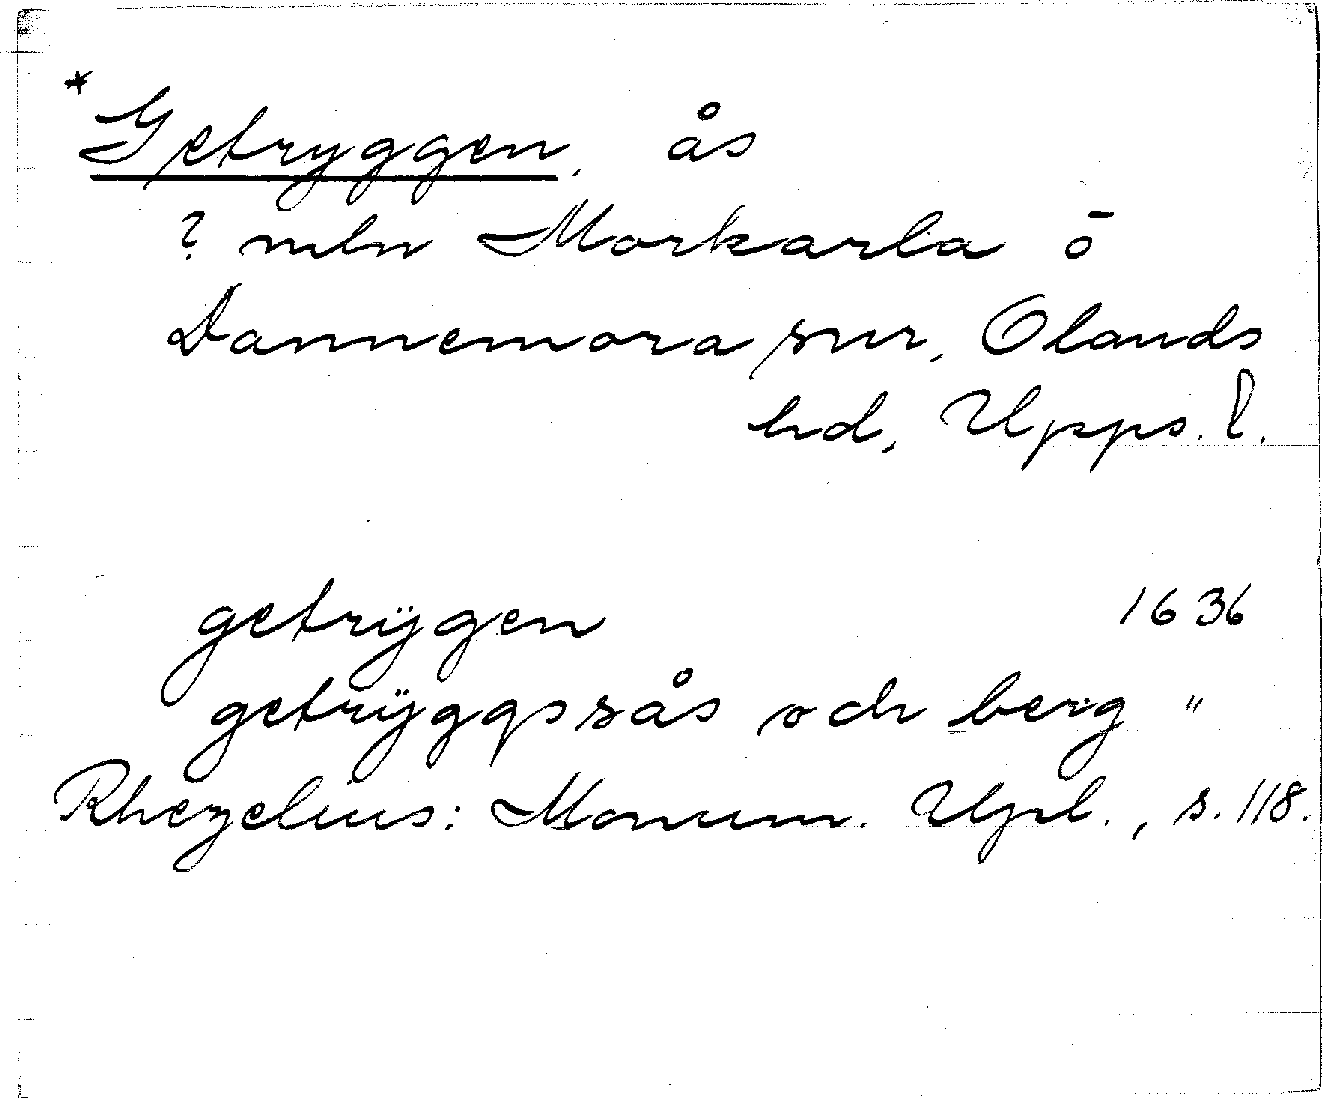 *Getryggen, ås
? mln Morkarla o
Dannemora snr, Olands
hd, Upps. l.
getrÿgen 1636
getrÿggsrås och berg "
Rhezelius: Monum. Upl., s. 118.